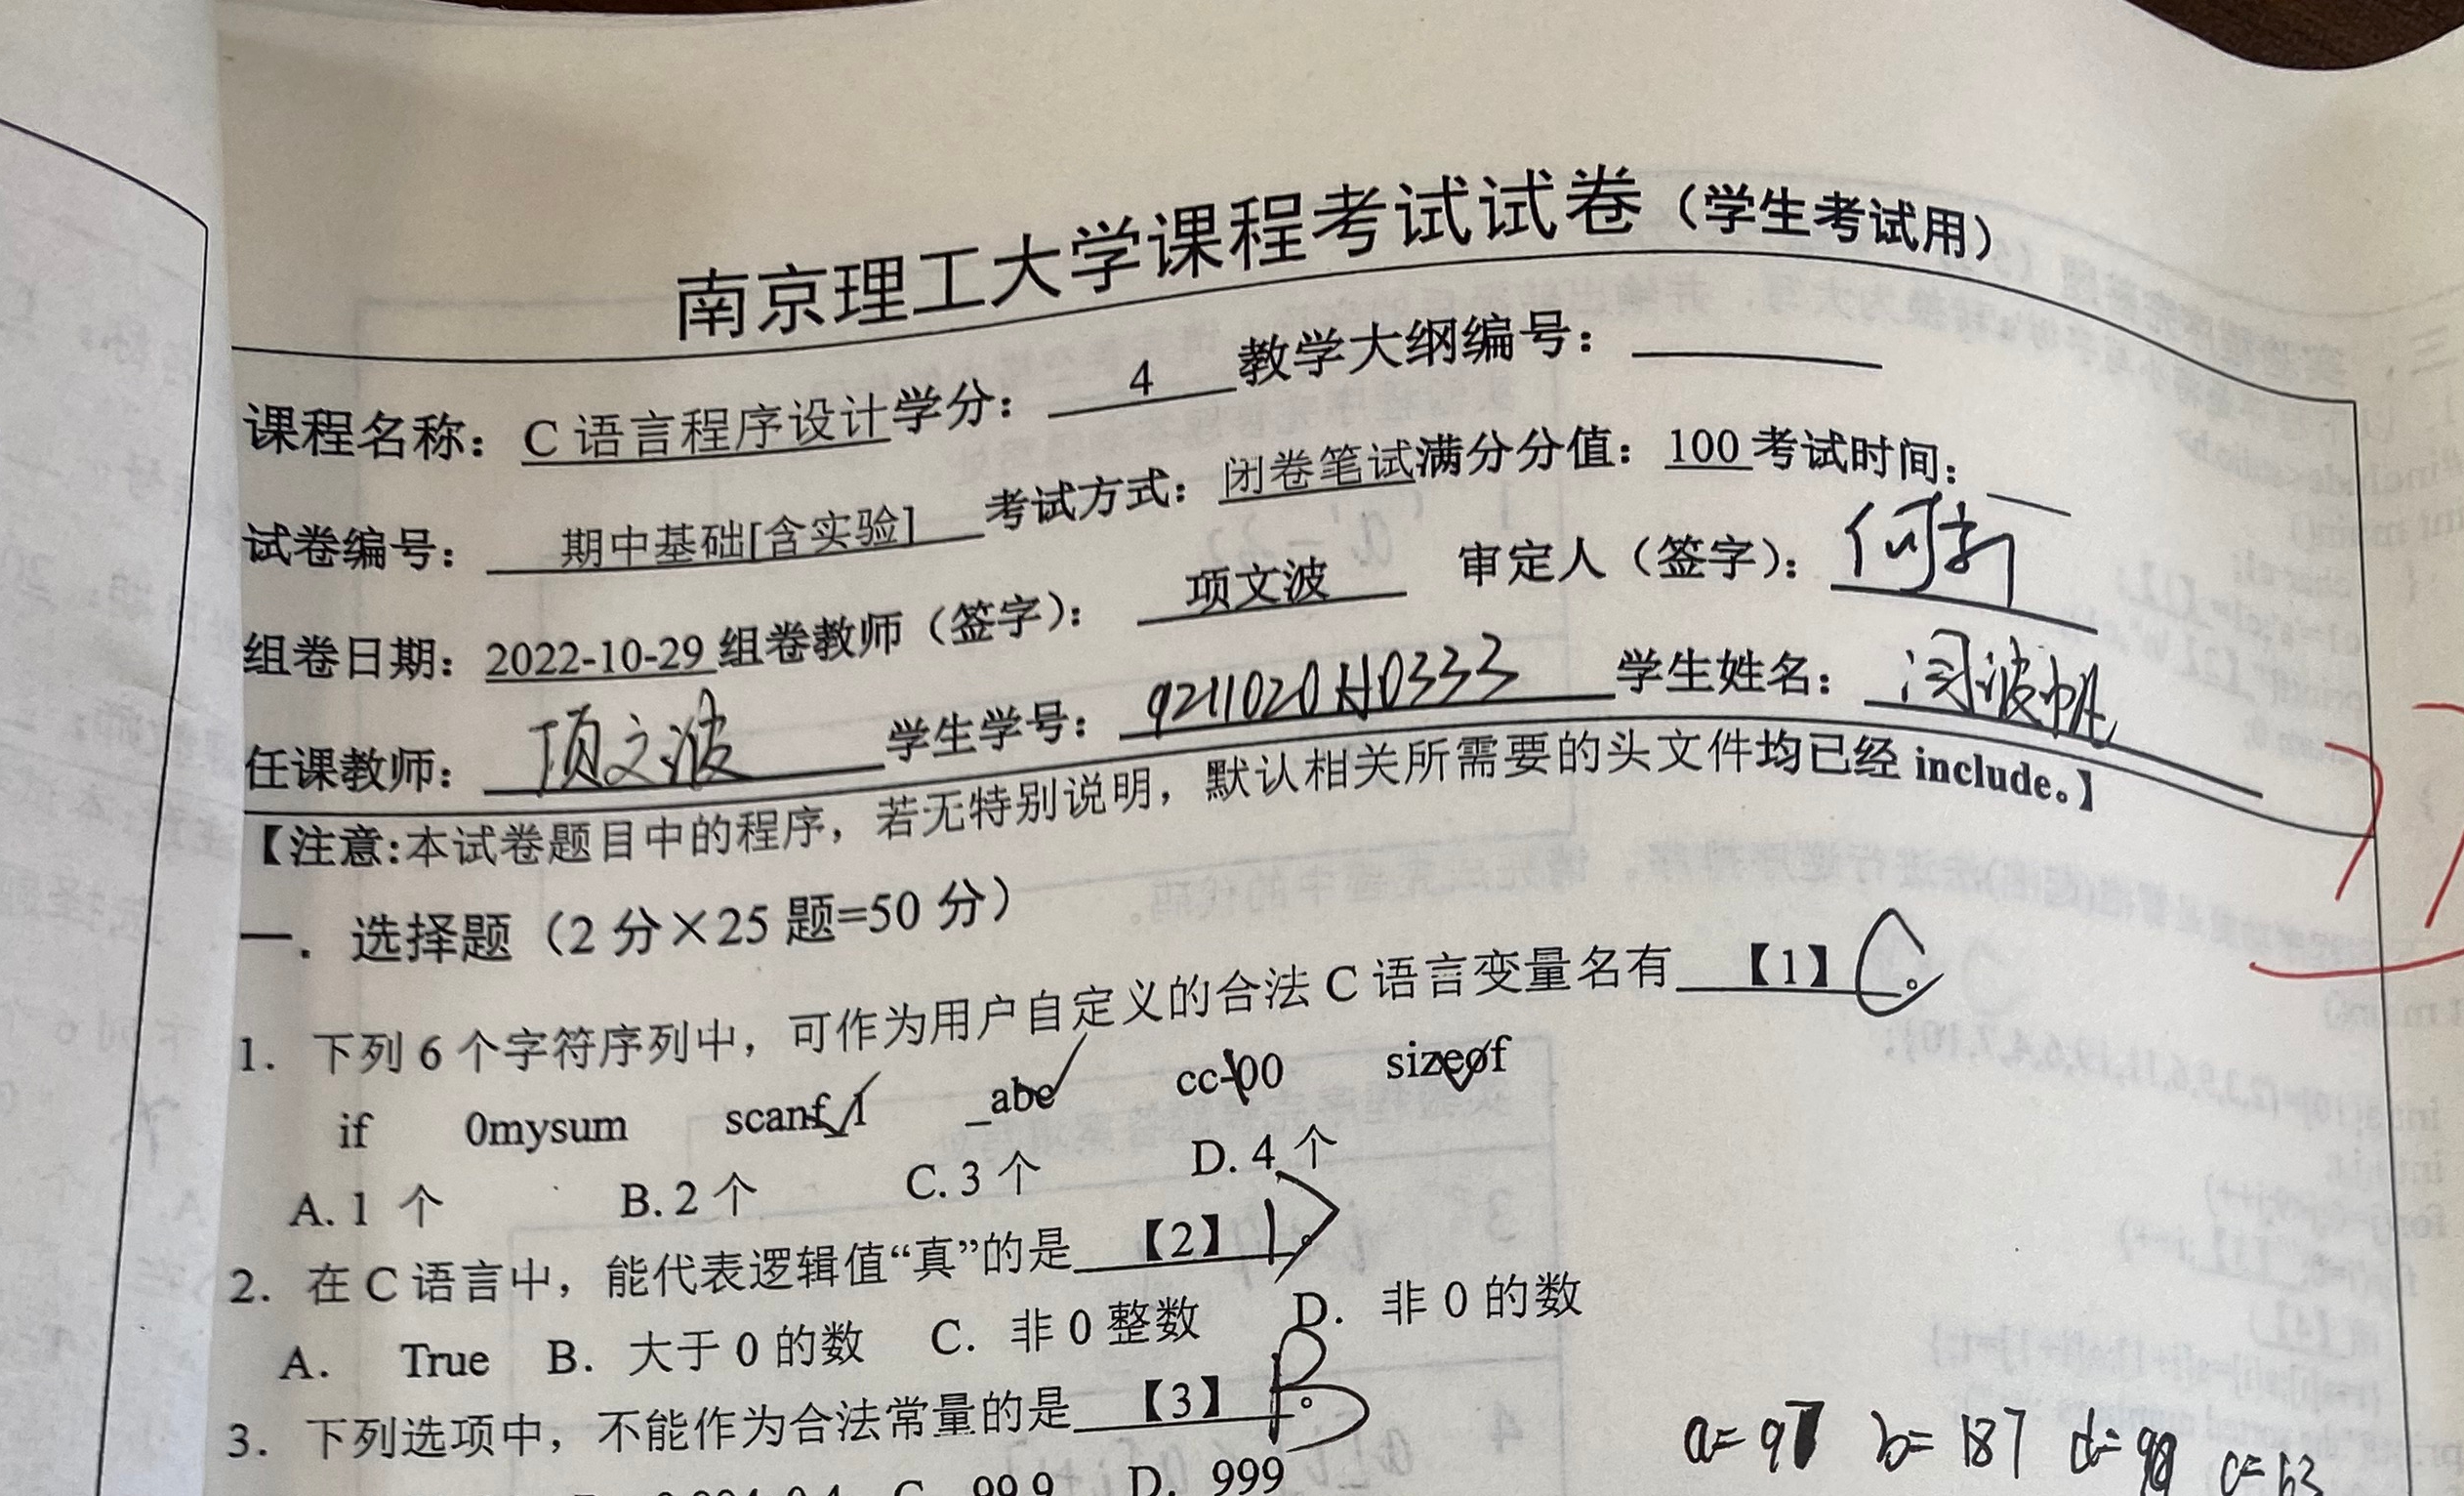 南京理工大学课程考试试卷（学生考试用）
课程名称：C 语言程序设计学分：4教学大纲编号：
试卷编号：期中基础[含实验]考试方式：闭卷笔试满分分值：100考试时间：
组卷日期：2022-10-29组卷教师（签字）：项文波 审定人（签字）：何新
任课教师：项文波学生学号：9211020H0333学生姓名：闵波帆
【注意:本试卷题目中的程序，若无特别说明，默认相关所需要的头文件均已经 include。】
一．选择题（2 分×25 题=50 分）
1．下列 6 个字符序列中，可作为用户自定义的合法 C 语言变量名有【1】C。
if 0mysum scanf_1 _abc cc-00 sizeof
A. 1 个 B. 2 个 C. 3 个 D. 4 个
2．在 C 语言中，能代表逻辑值“真”的是【2】D。
A. True B. 大于 0 的数 C. 非 0 整数 D. 非 0 的数
3．下列选项中，不能作为合法常量的是【3】B。
C. 99.9 D. 999
a=97 b=187 d=98 c=63